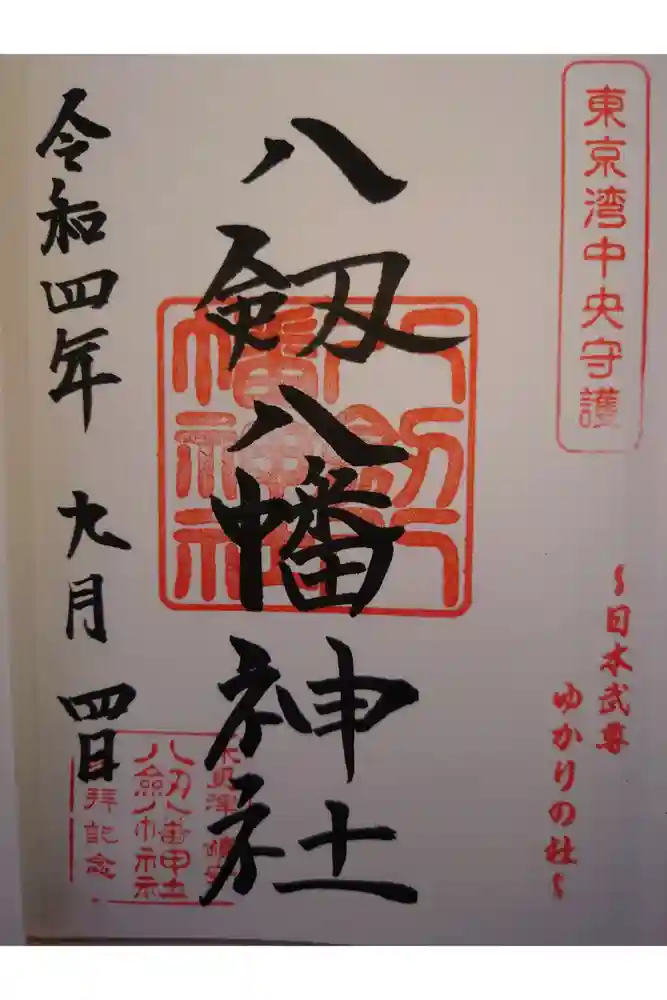 東京湾中央守護
～日本武尊
ゆかりの社～
八剱八幡神社
八剱八幡神社
木更津 鎮守
八剱八幡神社
拝記念
令和四年 九月 四日